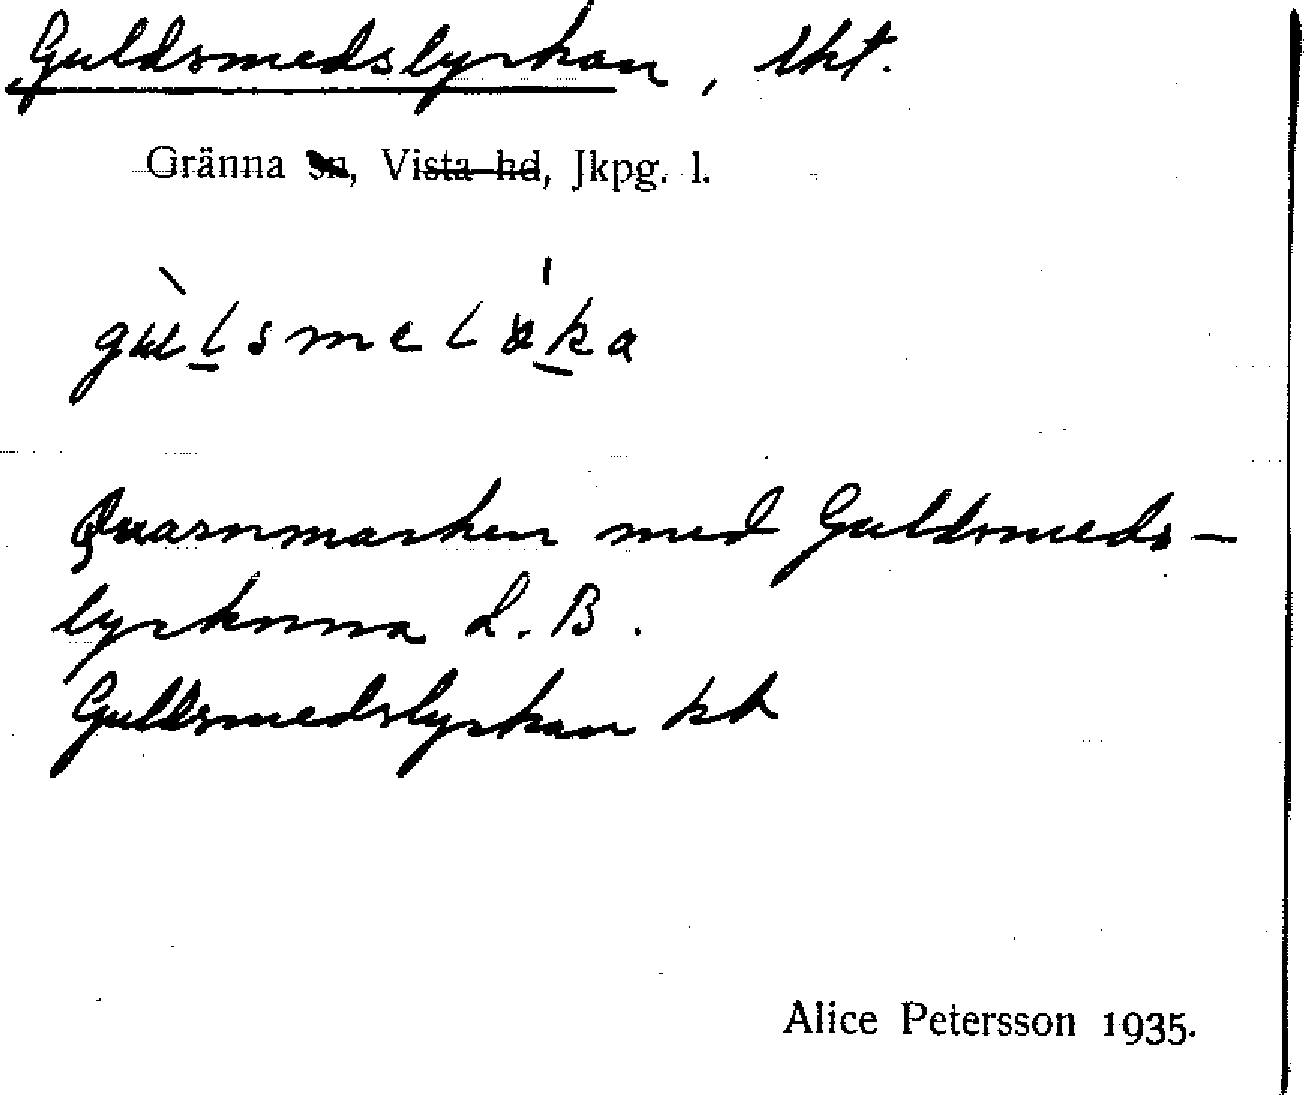 Guldsmedslyckan, lht.
Gränna sn, Vista hd, Jkpg. l.
Qvarnmarken med Guldsmeds-
lyckorna L. B.
Guldsmedslyckan kk
Alice Petersson 1935.